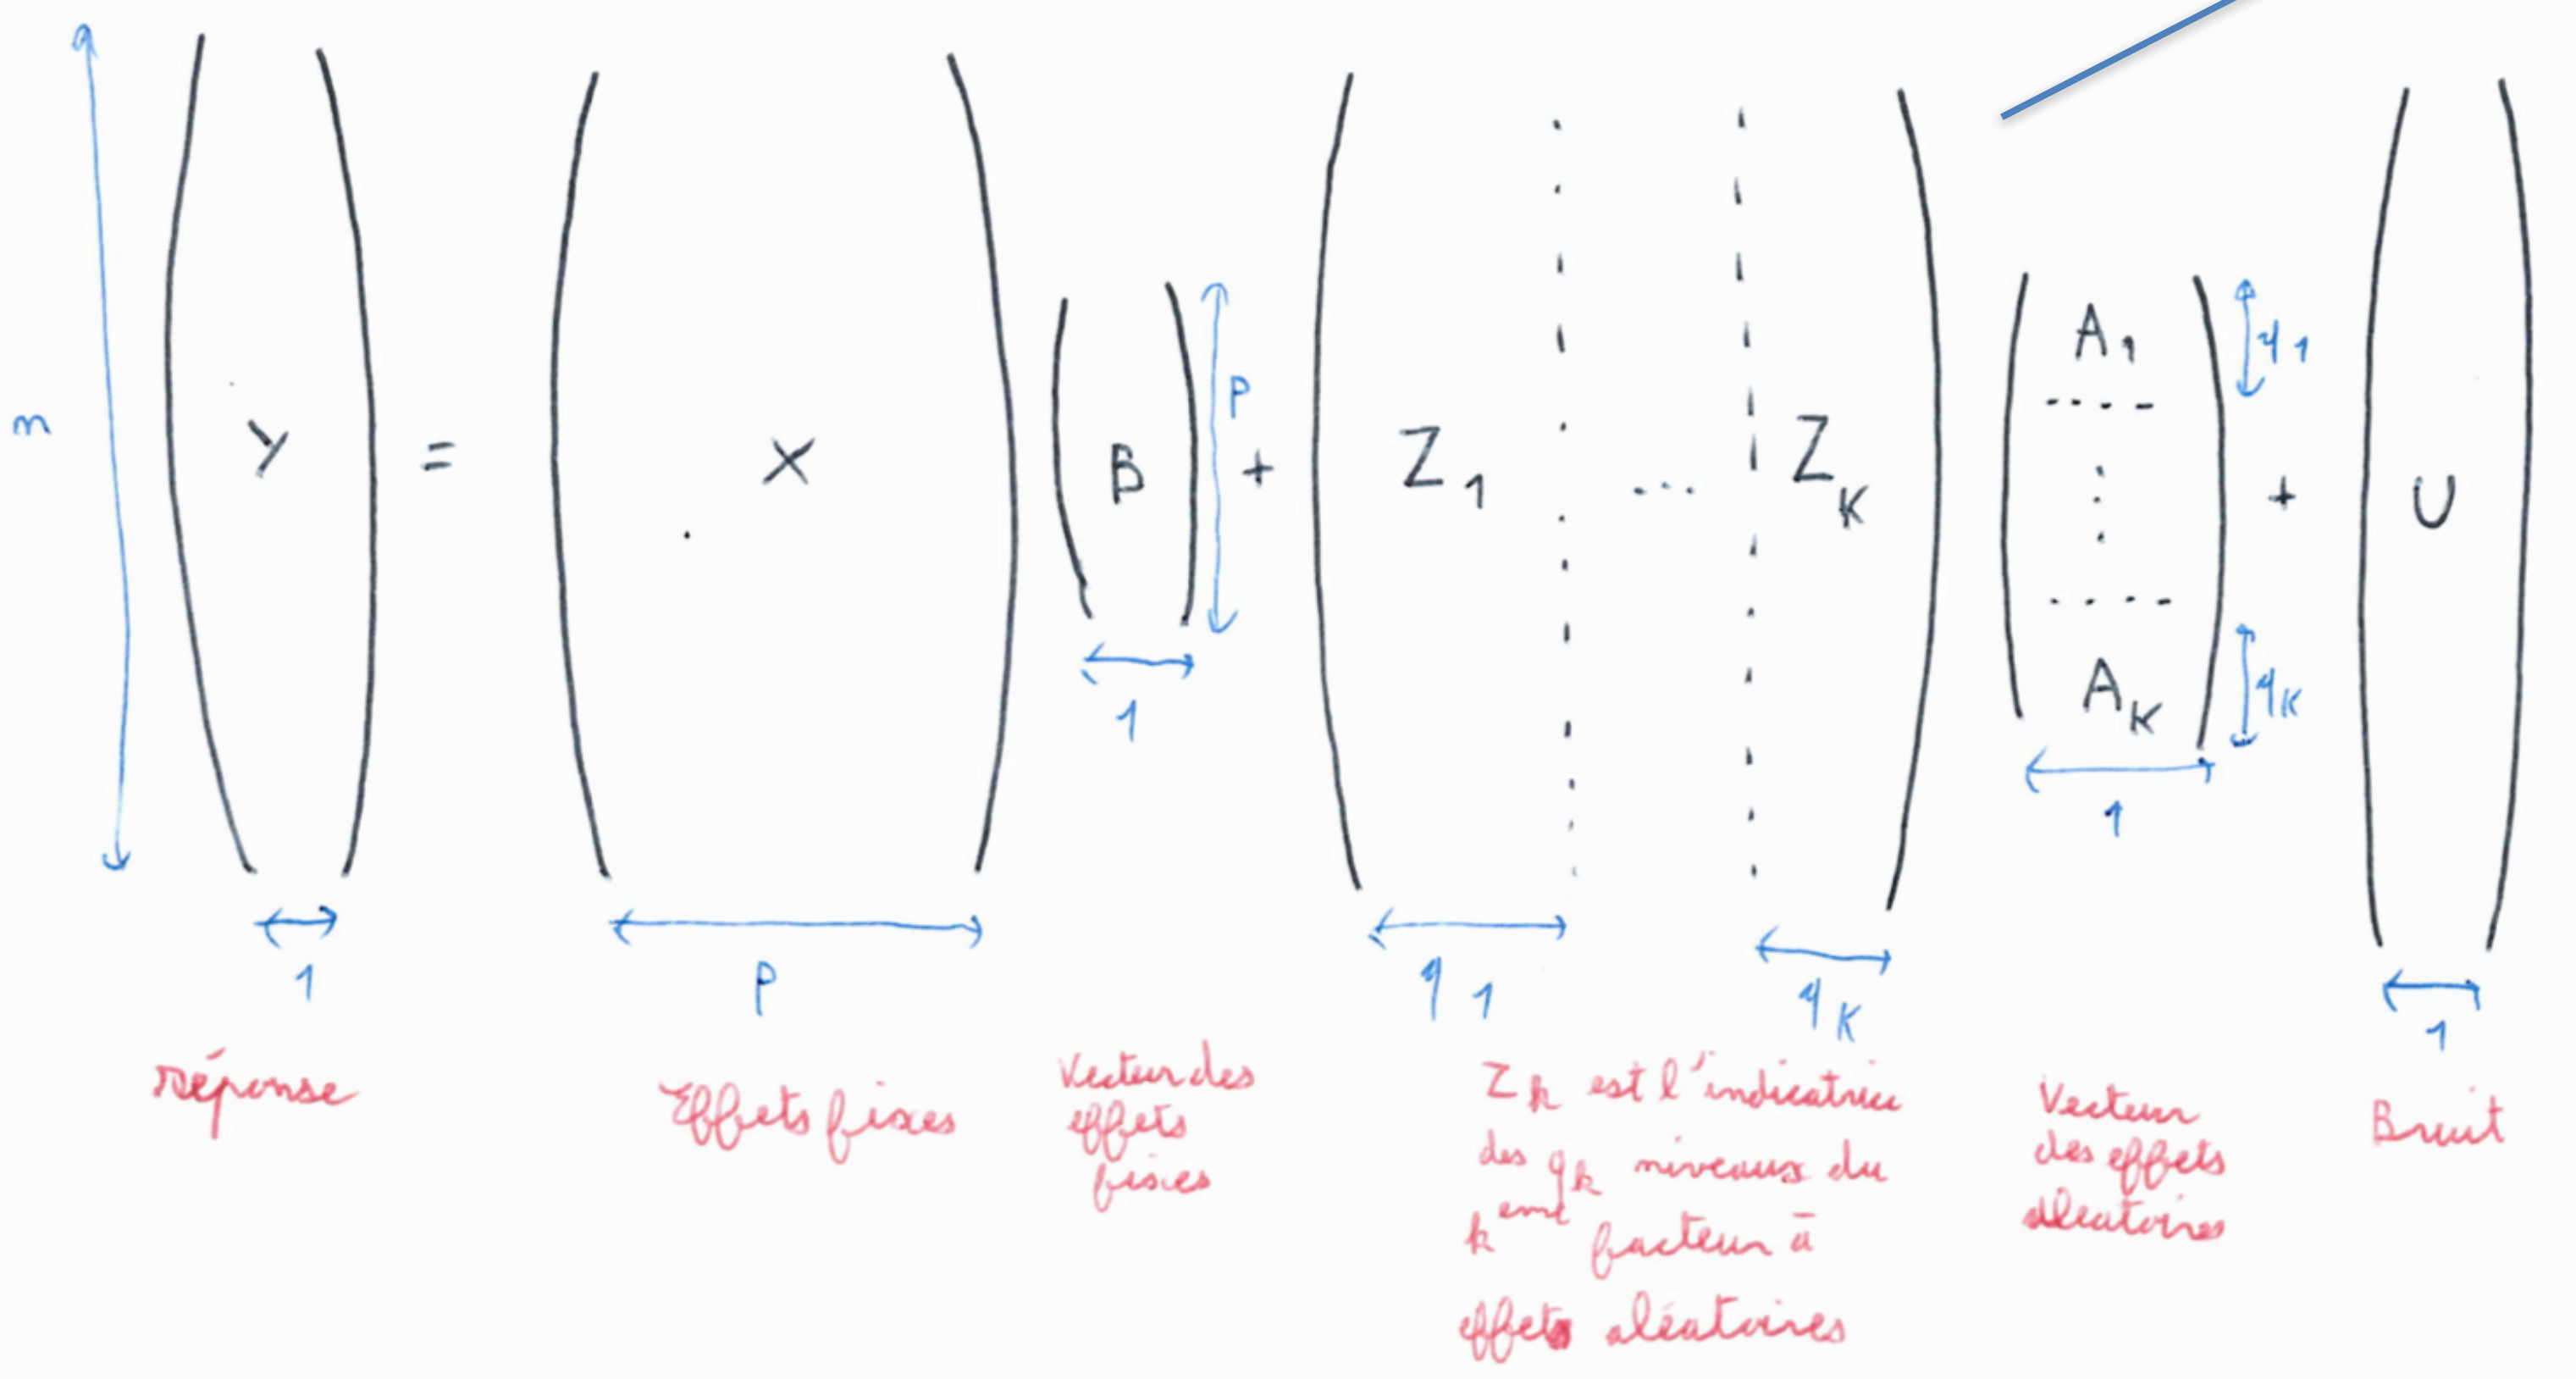 n
Y = X B + Z1 ... ZK A1 AK + U
P
q1
qK
1
1
1
P
q1
qK
1
réponse
Effets fixes
Vecteur des
effets
fixes
Zk est l'indicatrice
des qk niveaux du
k eme facteur à
effets aléatoires
Vecteur
des effets
aléatoires
Bruit